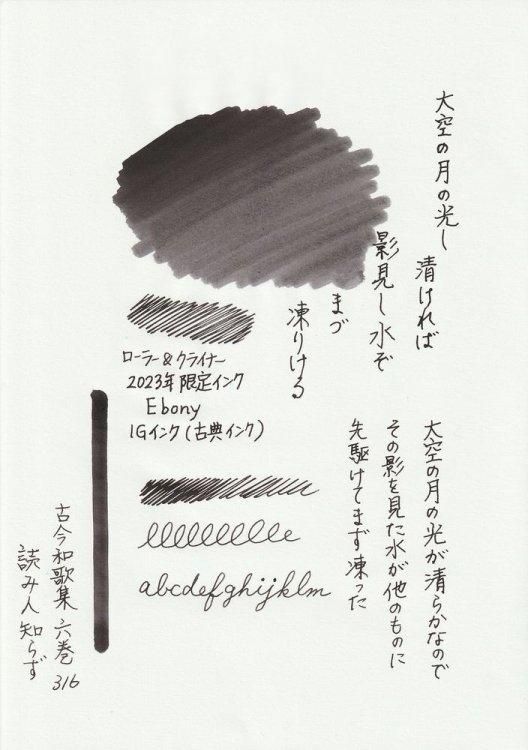 大空の月の光し
清ければ
影見し水ぞ
まづ
凍りける
ローラー&クライナー
2023年限定インク
Ebony
IGインク(古典インク)
大空の月の光が清らかなので
その影を見た水が他のものに
先駆けてまず凍った
abcdefghijklm
古今和歌集 六巻 316
読み人知らず